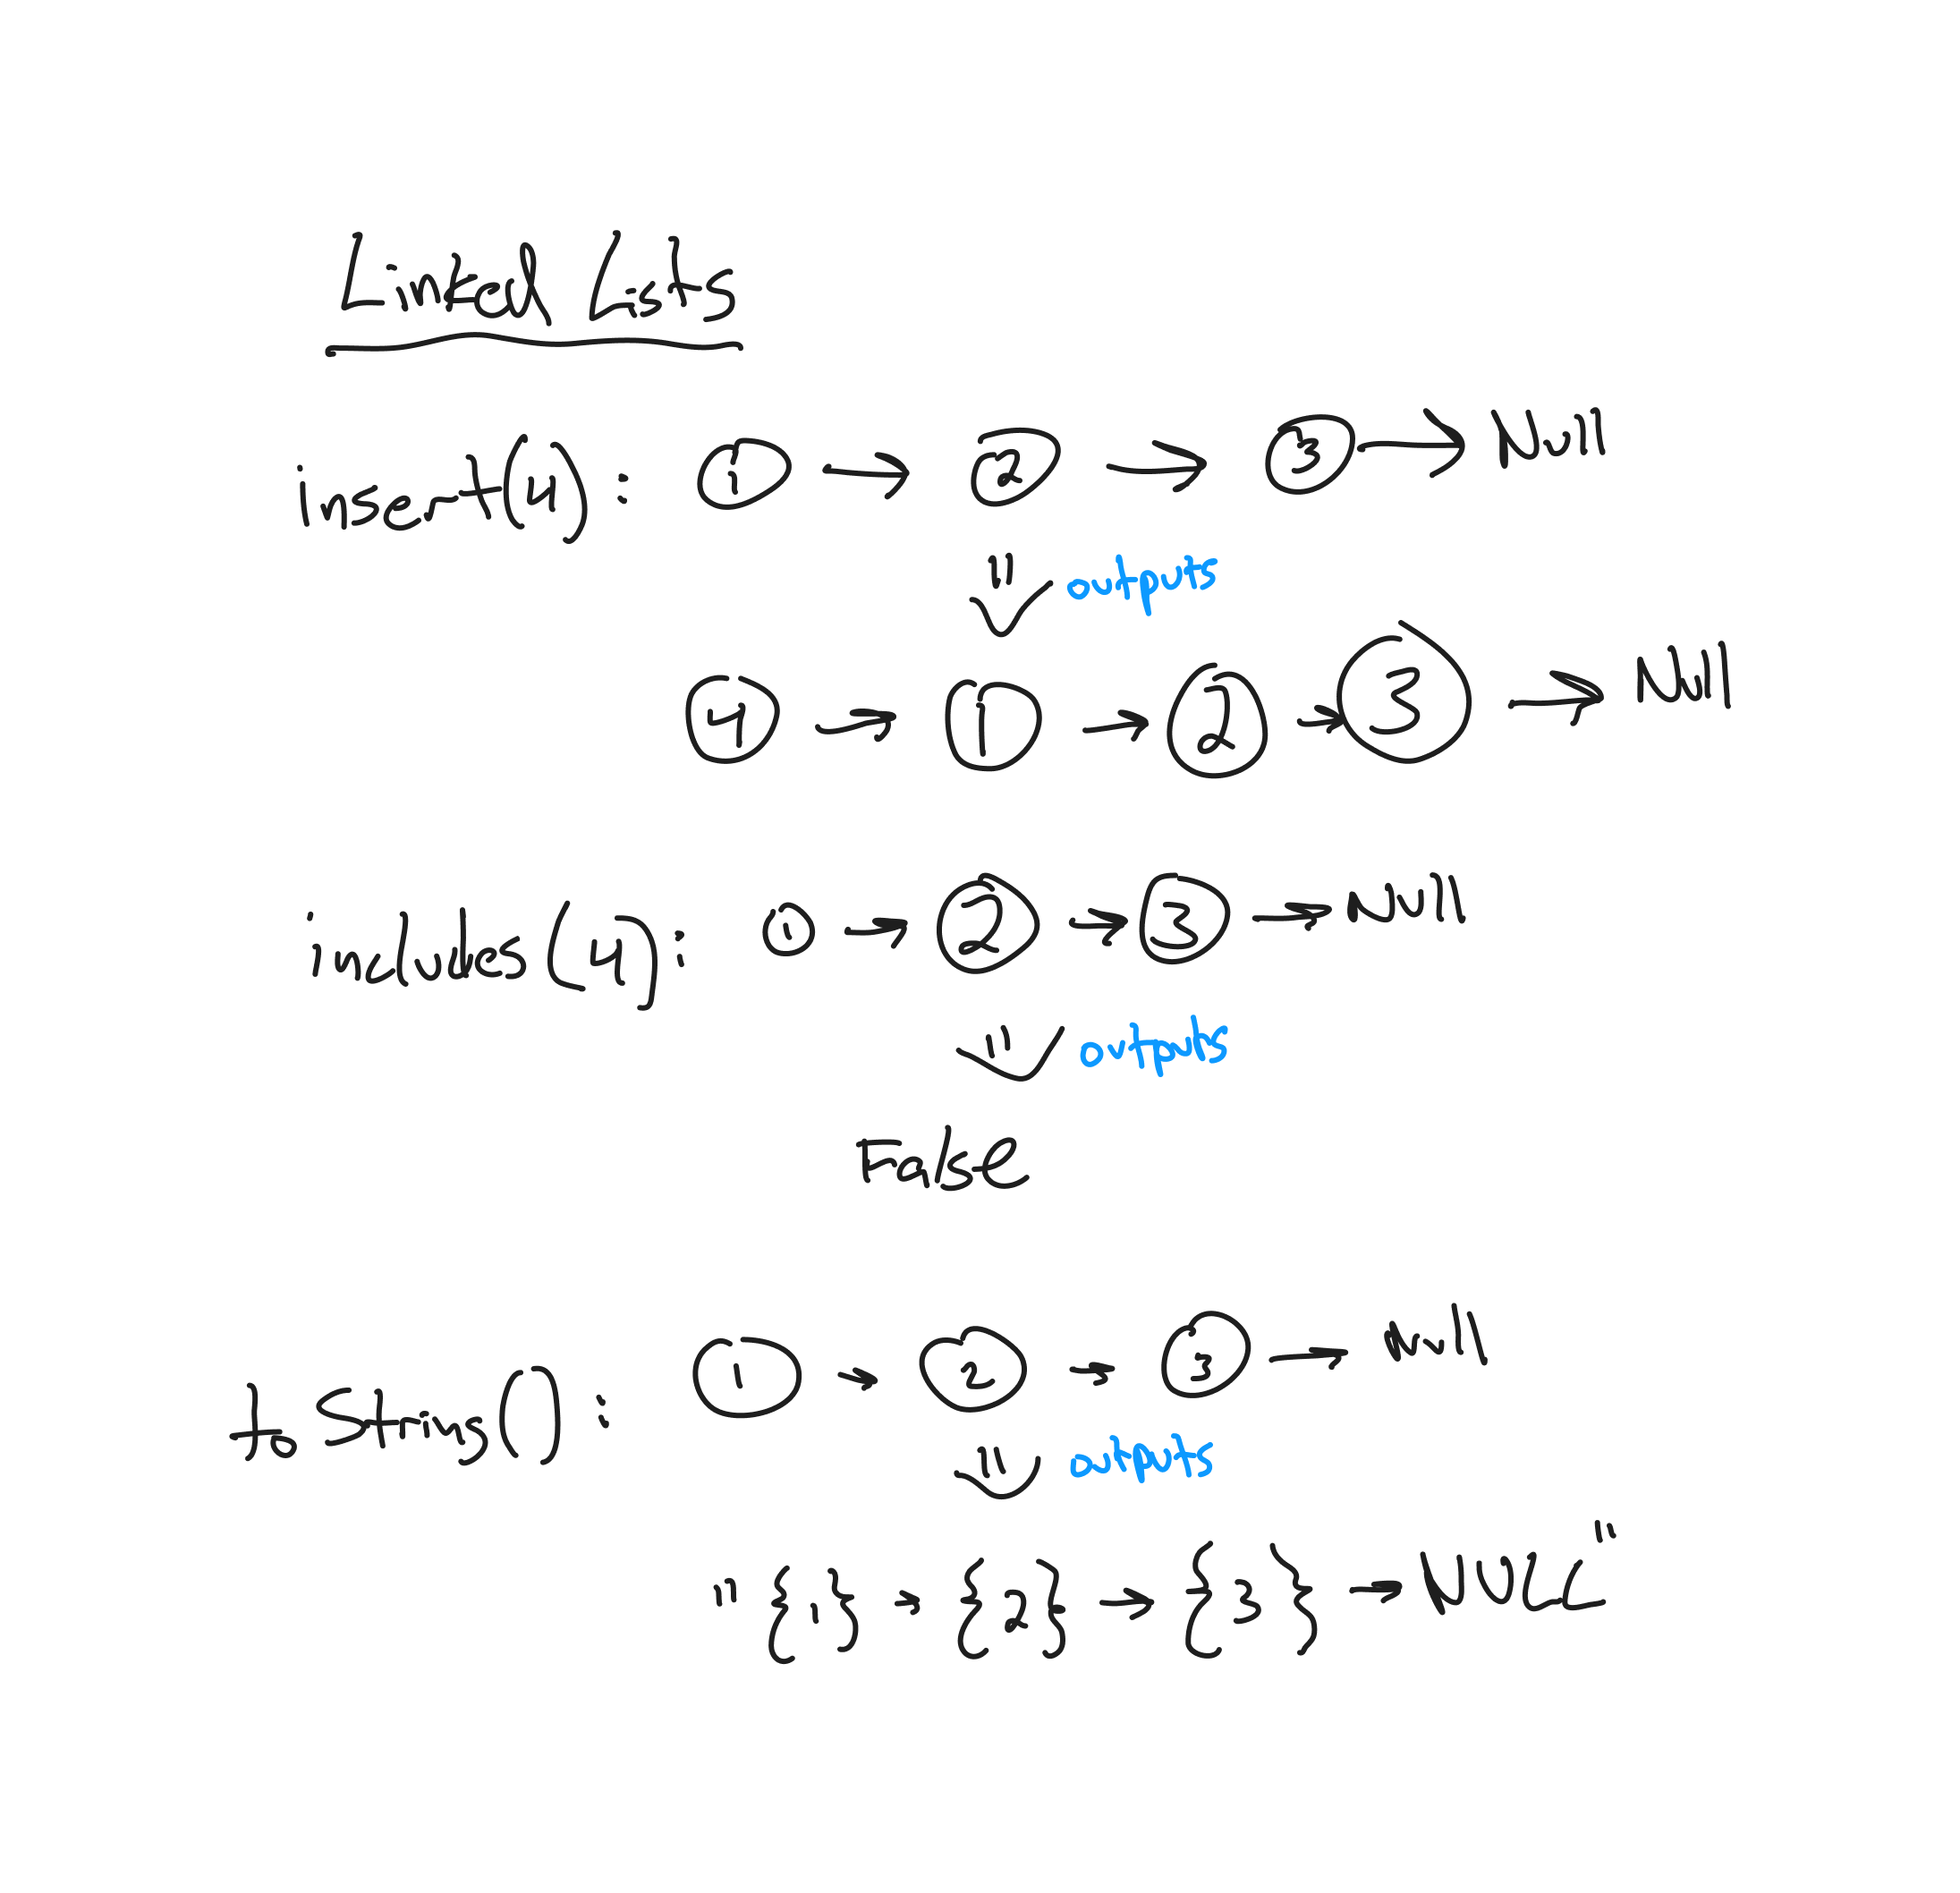 Linked Lists
insert(4): 1 → 2 → 3 → Null
outputs
4 → 1 → 2 → 3 → Null
includes(4): 1 → 2 → 3 → Null
outputs
False
to Strings(): 1 → 2 → 3 → Null
outputs
"{1} → {2} → {3} → NULL"